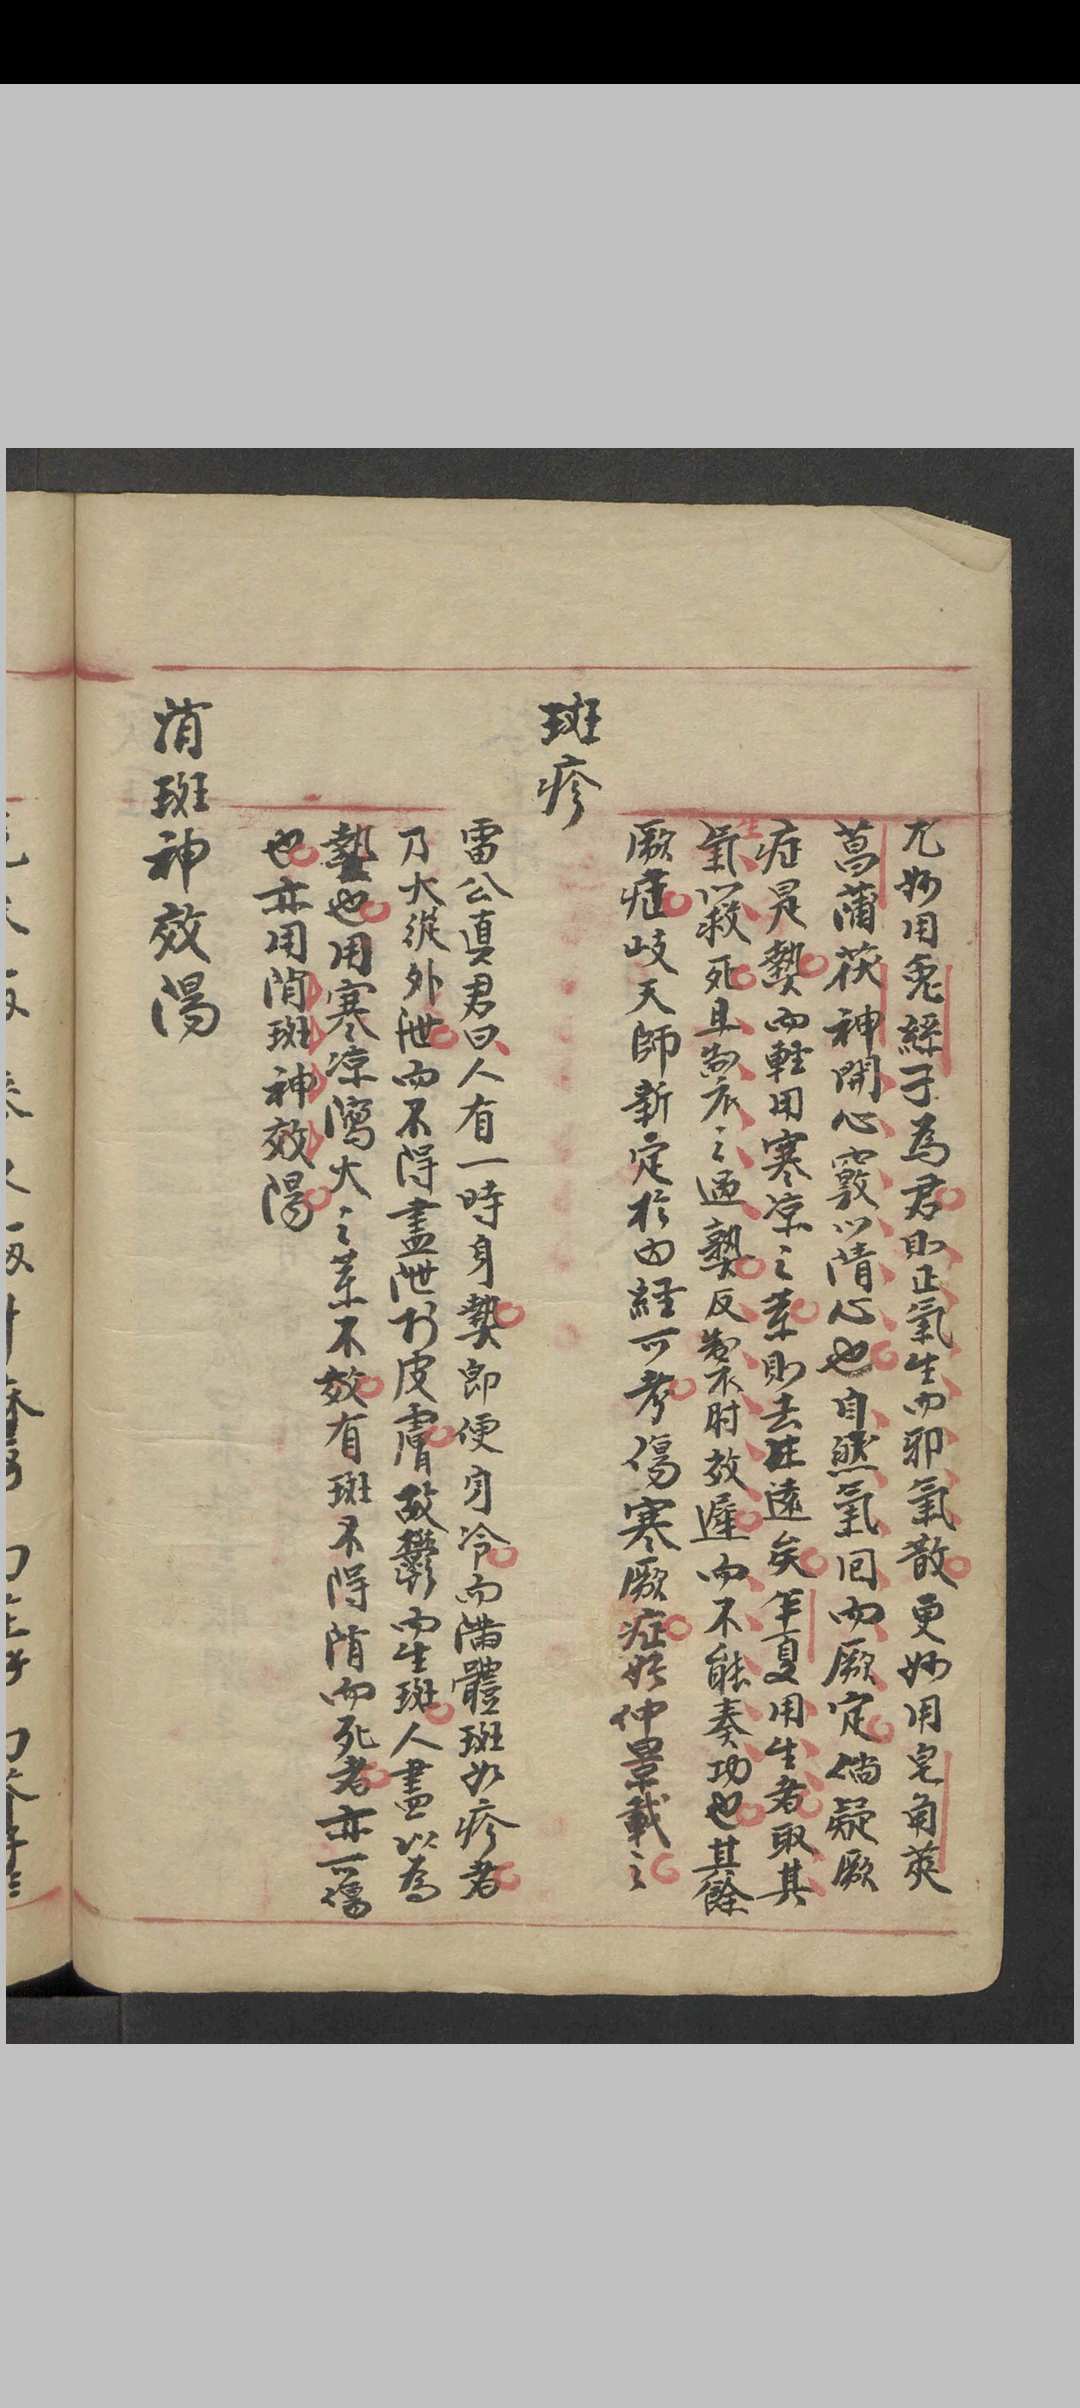 尤妙用兔絲子為君則正氣生而邪氣散更妙用皂角莢
菖蒲茯神開心竅以清心也自然氣回而厥定倘疑厥
症是熱而輕用寒涼之藥則去生遠矣半夏用生者取其
生氣以救死且制衣之過熟反掣肘效遲而不能奏功也其餘
厥症岐天師新定於內經可考傷寒厥症於仲景載之
斑疹
雷公真君曰人有一時身熱即便身冷而滿體斑如疹者
乃火從外泄而不得盡泄於皮膚故鬱而生斑人盡以為
熱也用寒涼瀉火之藥不效有斑不得消而死者亦可傷
也亦用消斑神效湯
消斑神效湯